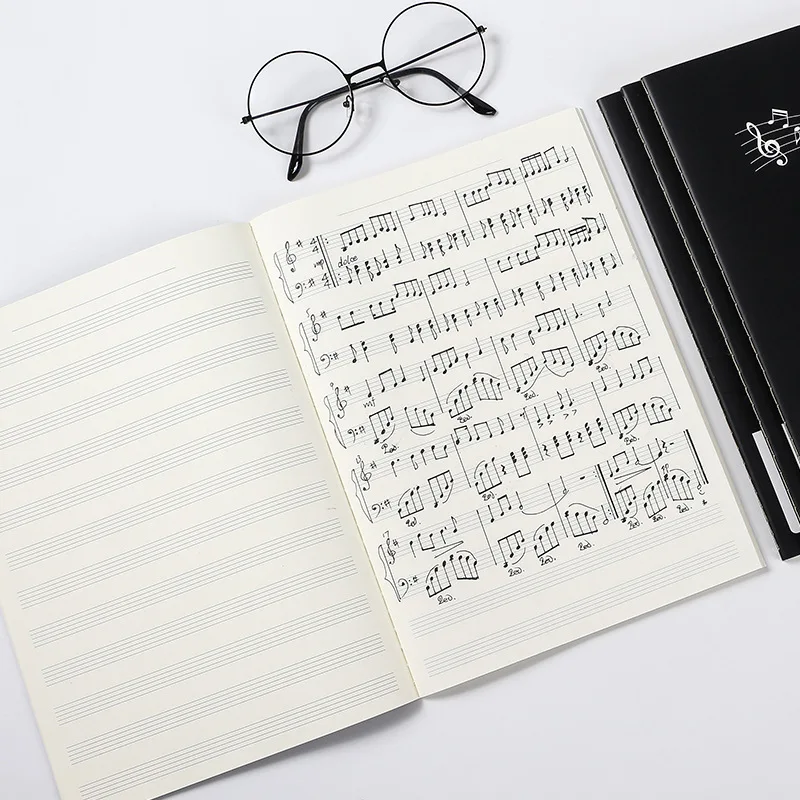 4 4
mp dolce
4 4
mf
Ped.
Ped. Ped. Ped.
Ped. Ped. Ped.
Ped. Ped. Ped. Ped. Ped. Ped.
Ped.